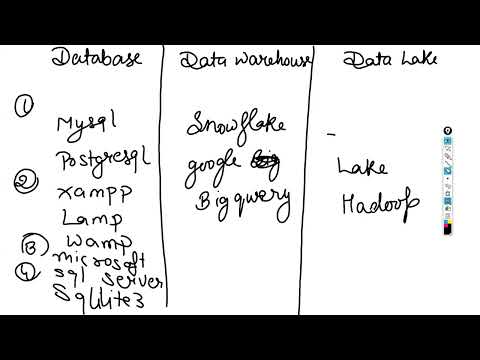 Database Data Warehouse Data Lake
①
Mysql Snowflake
Postgresql google
② Xampp Bigquery Lake
Lamp Hadoop
③ Wamp
microsoft
④ sql server
Sqllite3